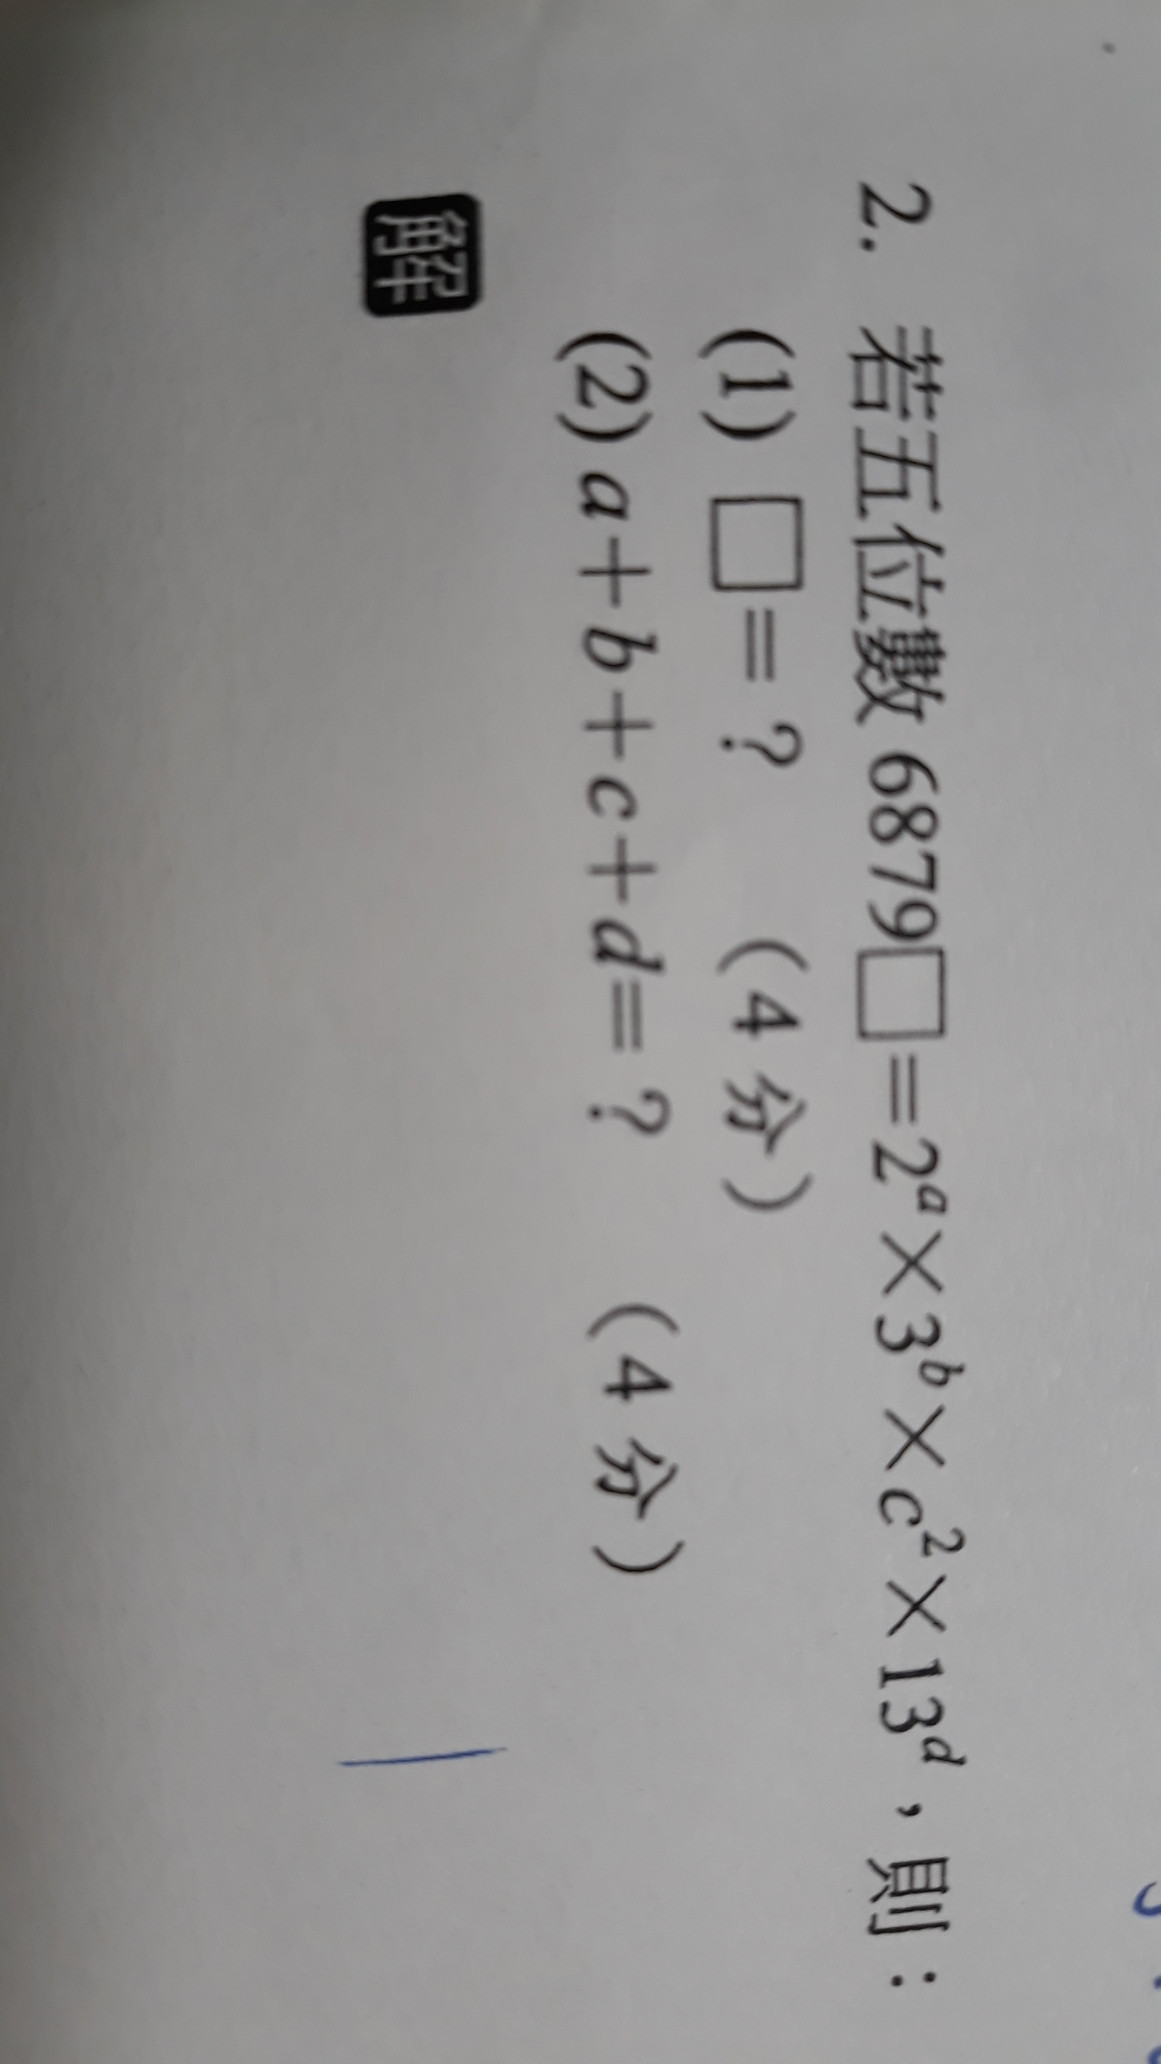 2. 若五位數 6879□=2ᵃ×3ᵇ×c²×13ᵈ，則：
(1) □=？ （4 分）
(2) a+b+c+d=？ （4 分）
解